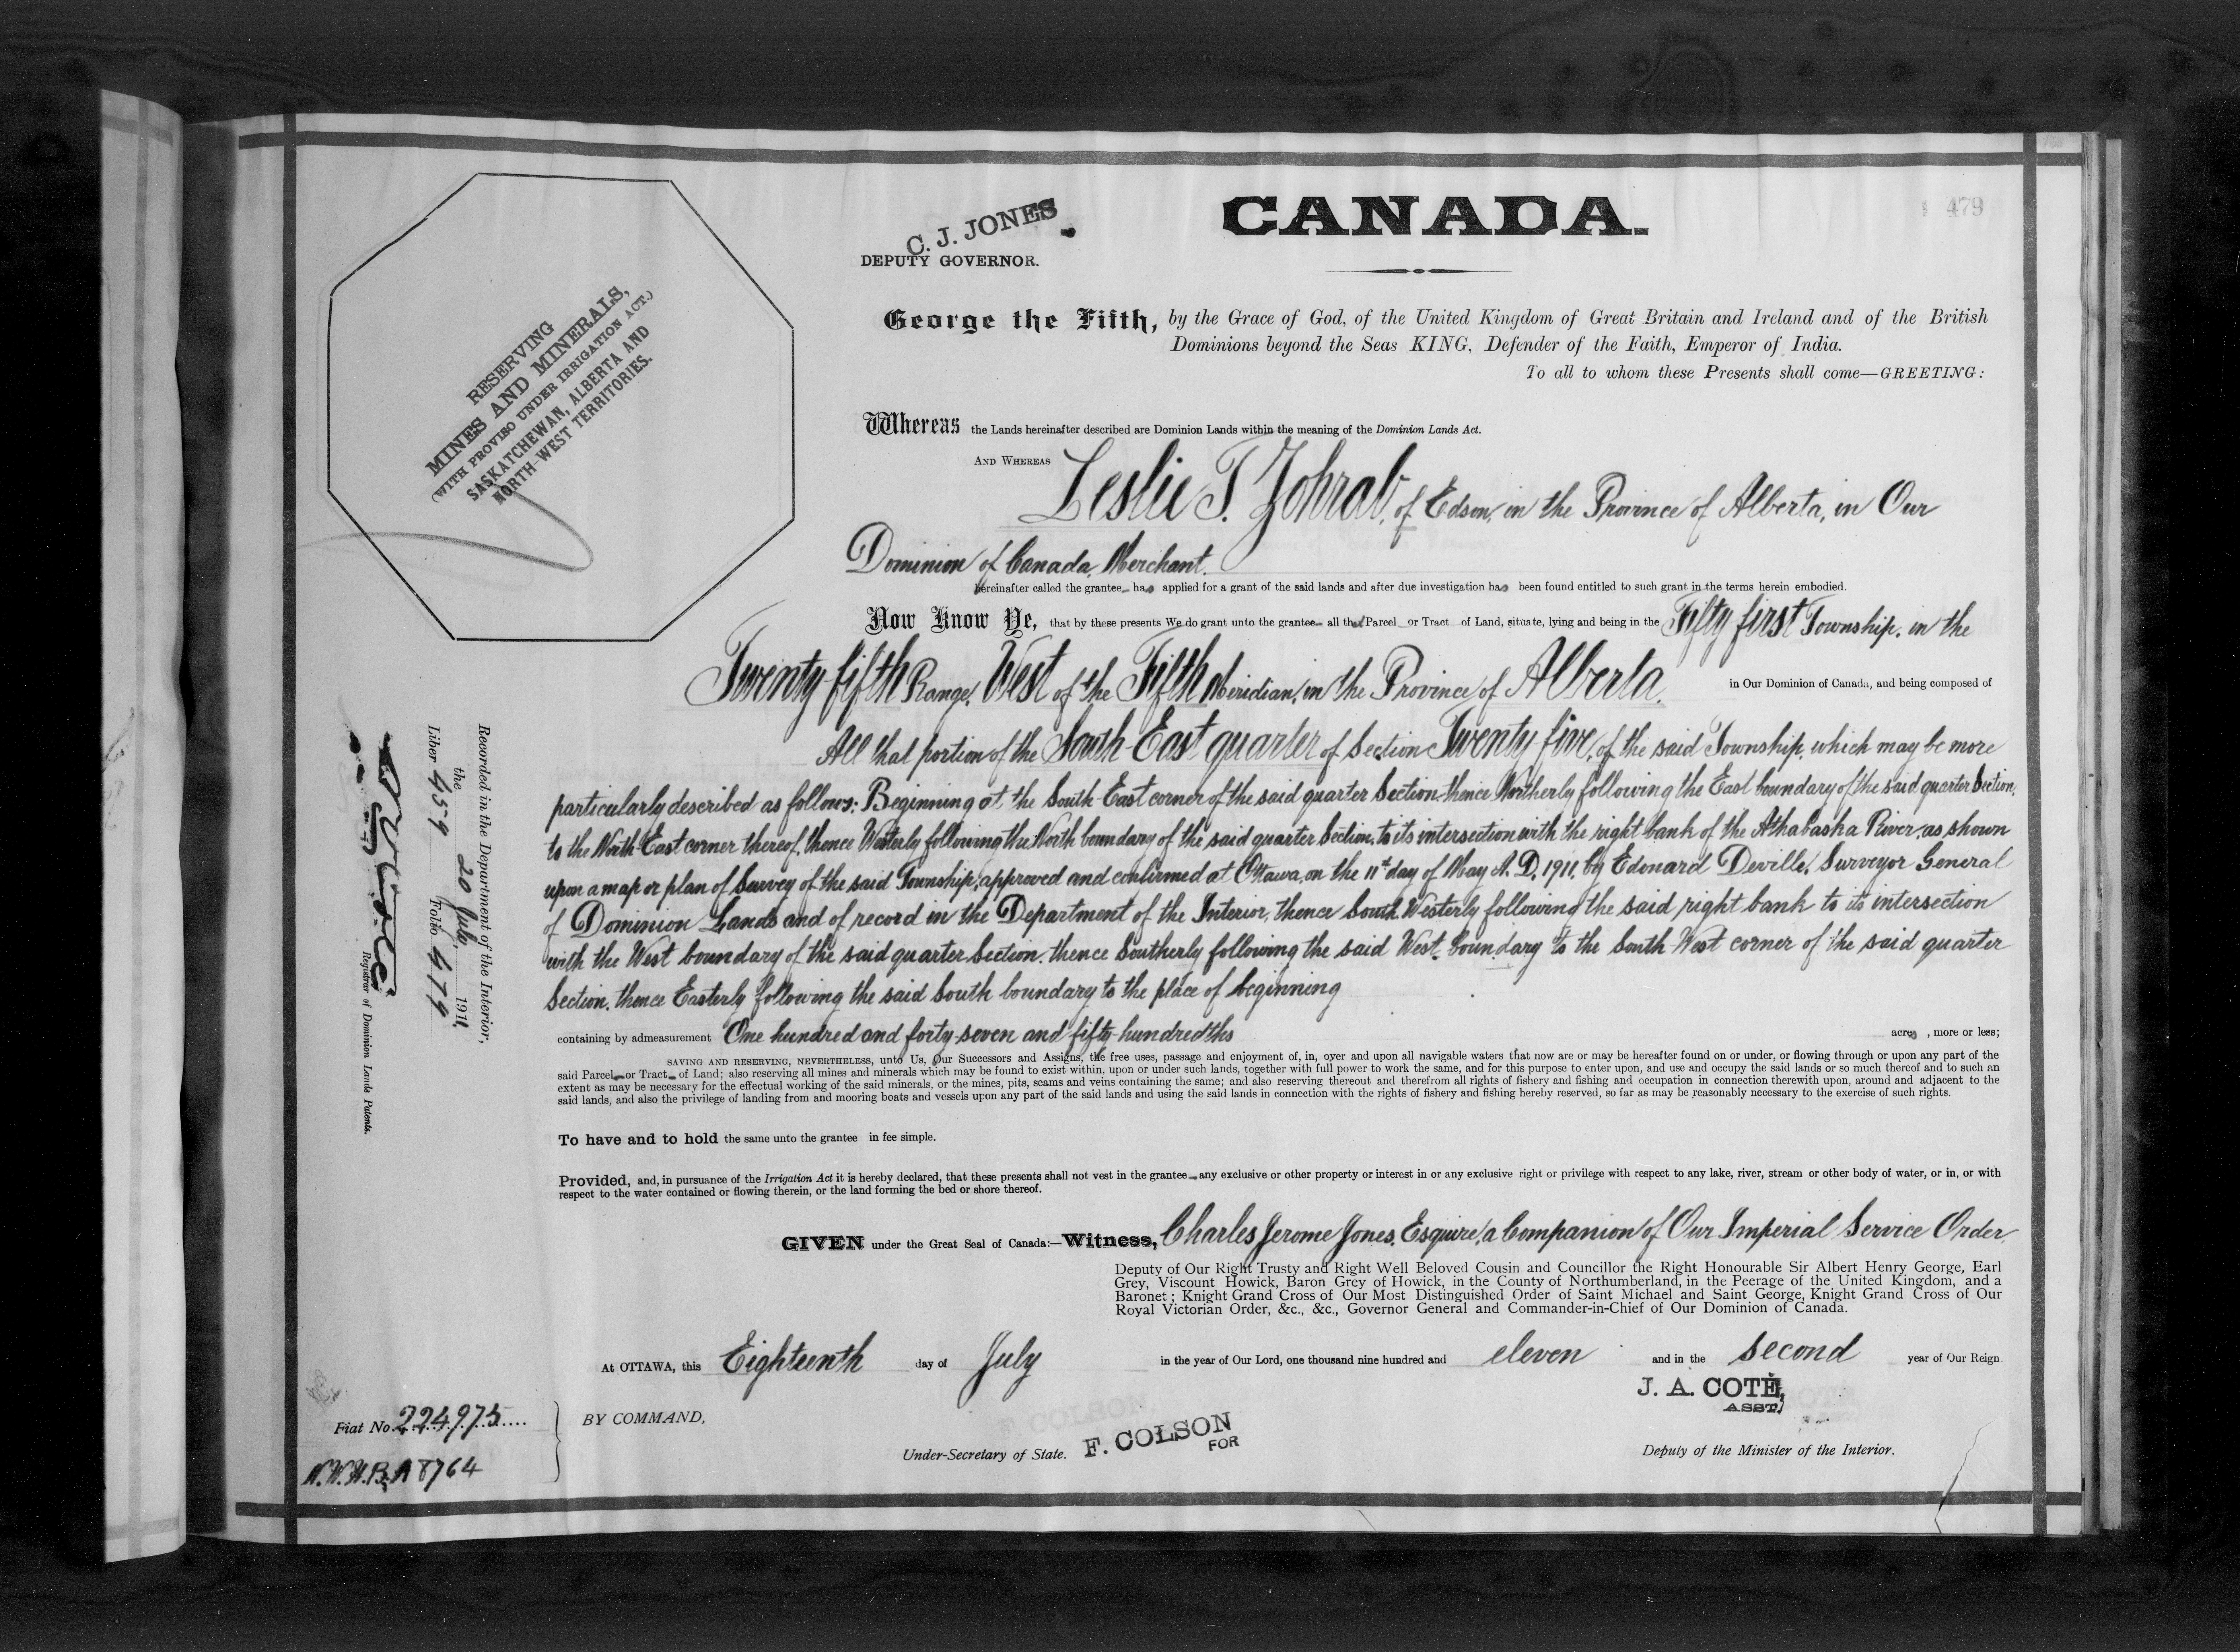 479
CANADA.
C. J. JONES
DEPUTY GOVERNOR.
RESERVING
MINES AND MINERALS,
(WITH PROVISO UNDER IRRIGATION ACT.)
SASKATCHEWAN, ALBERTA AND
NORTH-WEST TERRITORIES.
George the Fifth, by the Grace of God, of the United Kingdom of Great Britain and Ireland and of the British
Dominions beyond the Seas KING, Defender of the Faith, Emperor of India.
To all to whom these Presents shall come—GREETING:
Whereas the Lands hereinafter described are Dominion Lands within the meaning of the Dominion Lands Act.
AND WHEREAS Leslie T. Zohrab, of Edson, in the Province of Alberta, in Our
Dominion of Canada, Merchant.
hereinafter called the grantee has applied for a grant of the said lands and after due investigation has been found entitled to such grant in the terms herein embodied.
Now Know Ye, that by these presents We do grant unto the grantee all that Parcel or Tract of Land, situate, lying and being in the Fifty first Township, in the
Twenty fifth Range, West of the Fifth Meridian, in the Province of Alberta. in Our Dominion of Canada, and being composed of
All that portion of the South-East quarter of Section Twenty five, of the said Township, which may be more
particularly described as follows: Beginning at the South-East corner of the said quarter Section, thence Northerly following the East boundary of the said quarter Section,
to the North East corner thereof, thence Westerly following the North boundary of the said quarter Section, to its intersection with the right bank of the Athabaska River, as shown
upon a map or plan of Survey of the said Township, approved and confirmed at Ottawa, on the 11th day of May A. D. 1911, by Edouard Deville, Surveyor General
of Dominion Lands and of record in the Department of the Interior, thence South Westerly following the said right bank to its intersection
with the West boundary of the said quarter Section, thence Southerly following the said West boundary to the South West corner of the said quarter
Section, thence Easterly following the said South boundary to the place of beginning
containing by admeasurement One hundred and forty-seven and fifty-hundredths acres, more or less;
SAVING AND RESERVING, NEVERTHELESS, unto Us, Our Successors and Assigns, the free uses, passage and enjoyment of, in, over and upon all navigable waters that now are or may be hereafter found on or under, or flowing through or upon any part of the
said Parcel or Tract of Land; also reserving all mines and minerals which may be found to exist within, upon or under such lands, together with full power to work the same, and for this purpose to enter upon, and use and occupy the said lands or so much thereof and to such an
extent as may be necessary for the effectual working of the said minerals, or the mines, pits, seams and veins containing the same; and also reserving thereout and therefrom all rights of fishery and fishing and occupation in connection therewith upon, around and adjacent to the
said lands, and also the privilege of landing from and mooring boats and vessels upon any part of the said lands and using the said lands in connection with the rights of fishery and fishing hereby reserved, so far as may be reasonably necessary to the exercise of such rights.
To have and to hold the same unto the grantee in fee simple.
Provided, and, in pursuance of the Irrigation Act it is hereby declared, that these presents shall not vest in the grantee any exclusive or other property or interest in or any exclusive right or privilege with respect to any lake, river, stream or other body of water, or in, or with
respect to the water contained or flowing therein, or the land forming the bed or shore thereof.
GIVEN under the Great Seal of Canada:—Witness, Charles Jerome Jones, Esquire, a Companion of Our Imperial Service Order,
Deputy of Our Right Trusty and Right Well Beloved Cousin and Councillor the Right Honourable Sir Albert Henry George, Earl
Grey, Viscount Howick, Baron Grey of Howick, in the County of Northumberland, in the Peerage of the United Kingdom, and a
Baronet; Knight Grand Cross of Our Most Distinguished Order of Saint Michael and Saint George, Knight Grand Cross of Our
Royal Victorian Order, &c., &c., Governor General and Commander-in-Chief of Our Dominion of Canada.
At OTTAWA, this Eighteenth day of July in the year of Our Lord, one thousand nine hundred and eleven and in the second year of Our Reign.
J. A. COTÉ,
ASST.
BY COMMAND,
Under-Secretary of State. F. COLSON
FOR
Deputy of the Minister of the Interior.
Fiat No. 224975
N.W.H.B.A 8764
Recorded in the Department of the Interior,
the 20 July, 1911,
Liber 459 Folio 479
Registrar of Dominion Lands Patents.